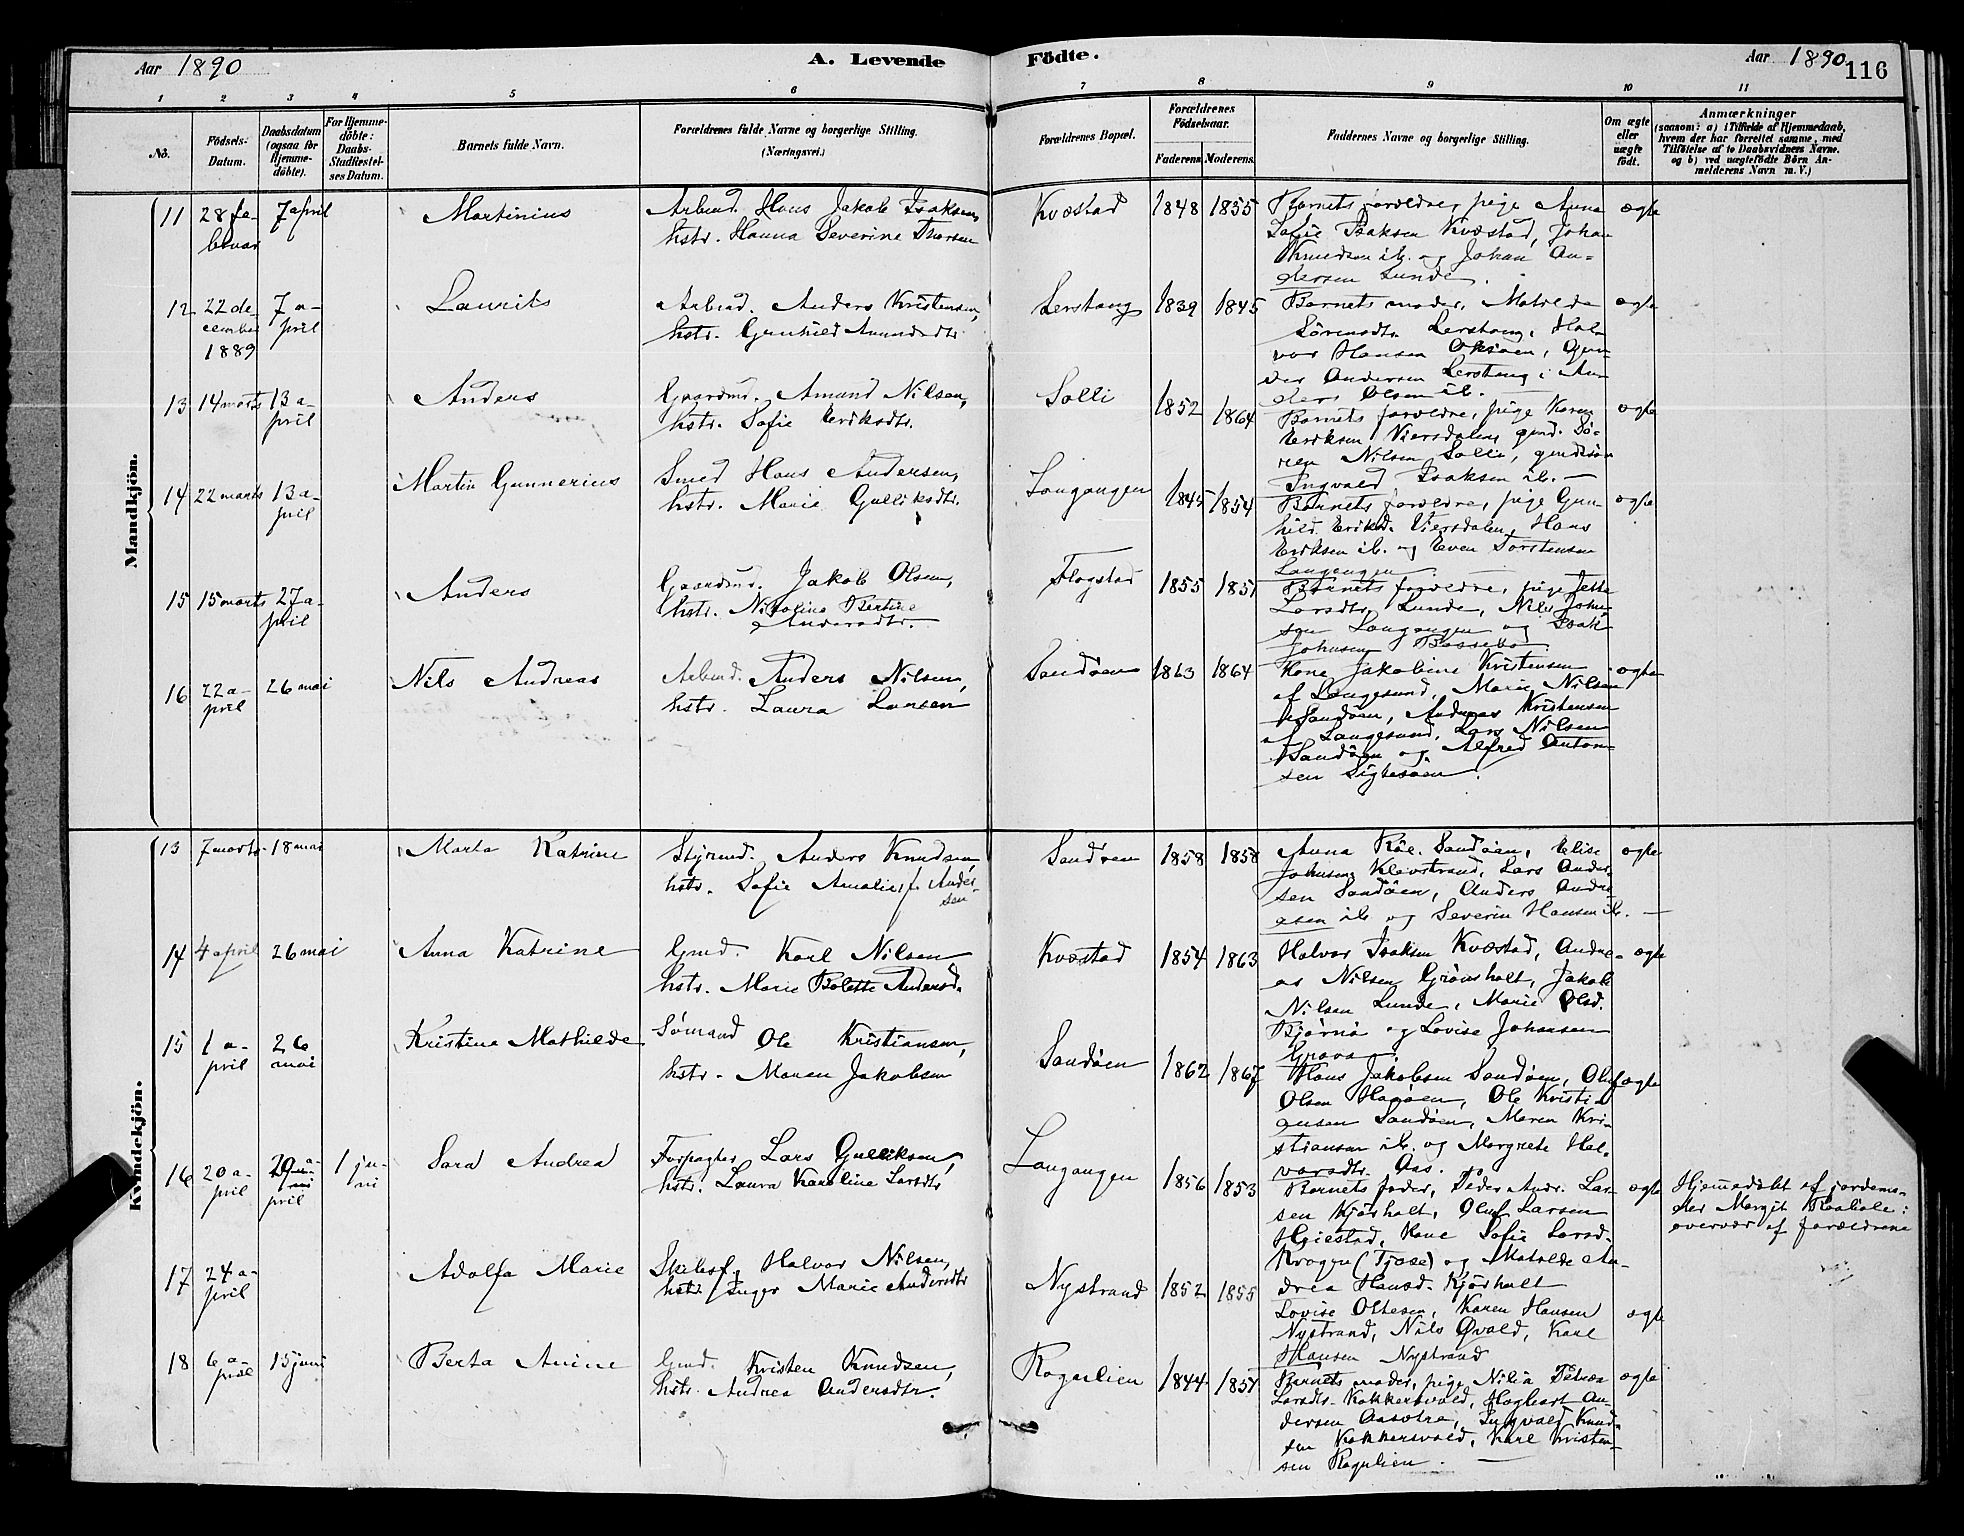 Aar 1890
A. Levende Födte.
Aar 1890
116
1 2 3 4 5 6 7 8 9 10 11
No.
Födsels-
Datum.
Daabsdatum
(ogsaa for
Hjemme-
döbte).
For Hjemme-
döbte:
Daabs-
Stadfæstel-
ses Datum.
Barnets fulde Navn.
Forældrenes fulde Navne og borgerlige Stilling.
(Næringsvei.)
Forældrenes Bopæl.
Forældrenes
Födselsaar.
Faderens. Moderens.
Faddernes Navne og borgerlige Stilling.
Om ægte
eller
uægte
födt.
Anmærkninger
(saasom: a) i Tilfælde af Hjemmedaab,
hvem der har forrettet samme, med
Tilföielse af to Daabsvidners Navne.
og b) ved uægtefödte Börn An-
melderens Navn m. V.)
Mandkjön.
11 28 fe-
bruar
7 april
Martinius
Arbmd. Hans Jakob Isaksen,
hstr. Hanna Severine Thorsen
Kvæstad 1848 1855
Barnets forældre, pige Anna
Sofie Isaksen Kvæstad, Johan
Knudsen ib. og Johan An-
dersen Lunde.
ægte
12 22 de-
cember
1889
7 a-
pril
Laurits
Arbmd. Anders Kristensen,
hstr. Gunhild Amundsdtr.
Lerstang 1839 1845
Barnets moder, Matilde
Sörensdtr. Lerstang, Hal-
vor Hansen Oksöen, Gun-
der Andersen Lerstang, An-
ders Olsen ib.
ægte
13 14 marts 13 a-
pril
Anders
Gaardmd. Amund Nilsen,
hstr. Sofie Eriksdtr.
Solli 1852 1864
Barnets forældre, pige Karen
Eriksen Viersdalen, gmd. Sö-
ren Nilsen Solli, gmdsön
Ingvald Isaksen ib.
ægte
14 22 marts 13 a-
pril
Martin Gunnerius
Smed Hans Andersen,
hstr. Marie Gulliksdtr.
Langangen 1845 1854
Barnets forældre, pige Gun-
hild Eriksd. Viersdalen, Hans
Eriksen ib. og Even Torstensen
Langangen
ægte
15 15 marts 27 a-
pril
Anders
Gaardmd. Jakob Olsen,
hstr. Nikoline Bertine
Andersdtr.
Flogstad 1855 1851
Barnets forældre, pige Jette
Larsdtr. Lunde, Nils John-
sen Langangen og Isak
Johnsen Bassebo.
16 22 a-
pril
26 mai
Nils Andreas
Arbmd. Anders Nilsen,
hstr. Laura Larsen
Sandöen 1863 1864
Kone Jakobine Kristensen
af Langesund, Marie Nilsen
Sandöen, Andreas Kristensen
af Langesund, Lars Nilsen
Sandöen og Alfred Anton-
sen Sigtesöen.
ægte
Kvindekjön.
13 7 marts 18 mai
Marta Katrine
Styrmd. Anders Knudsen,
hstr. Sofie Amalie f. Ander-
sen
Sandöen 1858 1858
Anna Röe Sandöen, Elise
Johnsen Klevstrand, Lars Ander-
sen Sandöen, Anders Andre-
asen ib. og Severin Hansen ib.
ægte
14 4 april 26 mai
Anna Katrine
Gmd. Karl Nilsen
hstr. Marie Bolette Andersd.
Kvæstad 1854 1863
Halvor Isaksen Kvæstad, Andre-
as Nilsen Grönsholt, Jakob
Nilsen Lunde, Marie Olsd.
Björnö og Lovise Johansen
Grava.
ægte
15 1 a-
pril
26
mai
Kristine Mathilde
Sömand Ole Kristiansen,
hstr. Maren Jakobsen
Sandöen 1862 1867
Hans Jakobsen Sandöen, Oluf
Olsen Haaöen, Ole Kristi-
ansen Sandöen, Maren Kri-
stiansen ib. og Margrete Hal-
vorsdtr. Aas.
ægte
16 20 a-
pril
20 a-
pril
1 ju-
ni
Sara Andrea
Forpagter Lars Gulliksen,
hstr. Laura Karoline Larsdtr
Langangen 1856 1853
Barnets fader, Peder Andr. Lar-
sen Kjörholt, Oluf Larsen
Heiestad, Kone Sofie Larsd.
Krogen (Tjose) og Matilde An-
drea Hansd. Kjörholt
ægte
Hjemmedöbt af jordemo-
der Margit i
overvær af forældrene
17 24 a-
pril
Adolfa Marie
Skibsf. Halvor Nilsen,
hstr. Inger Marie Andersdtr
Nystrand 1852 1855
Lovise Oltesen, Karen Hansen
Nystrand, Nils Övald, Karl
Hansen Nystrand
ægte
18 6 a-
pril
15 juni
Berta Anine
Gmd. Kristen Knudsen,
hstr. Andrea Andersdtr.
Rognlien 1844 1851
Barnets moder, pige Nilia Petrea
Larsdtr. Kokkersvold, Hagbart An-
dersen Aasstra, Ingvald Knud-
sen Kokkersvold, Karl Kristen-
sen Rognlien.
ægte